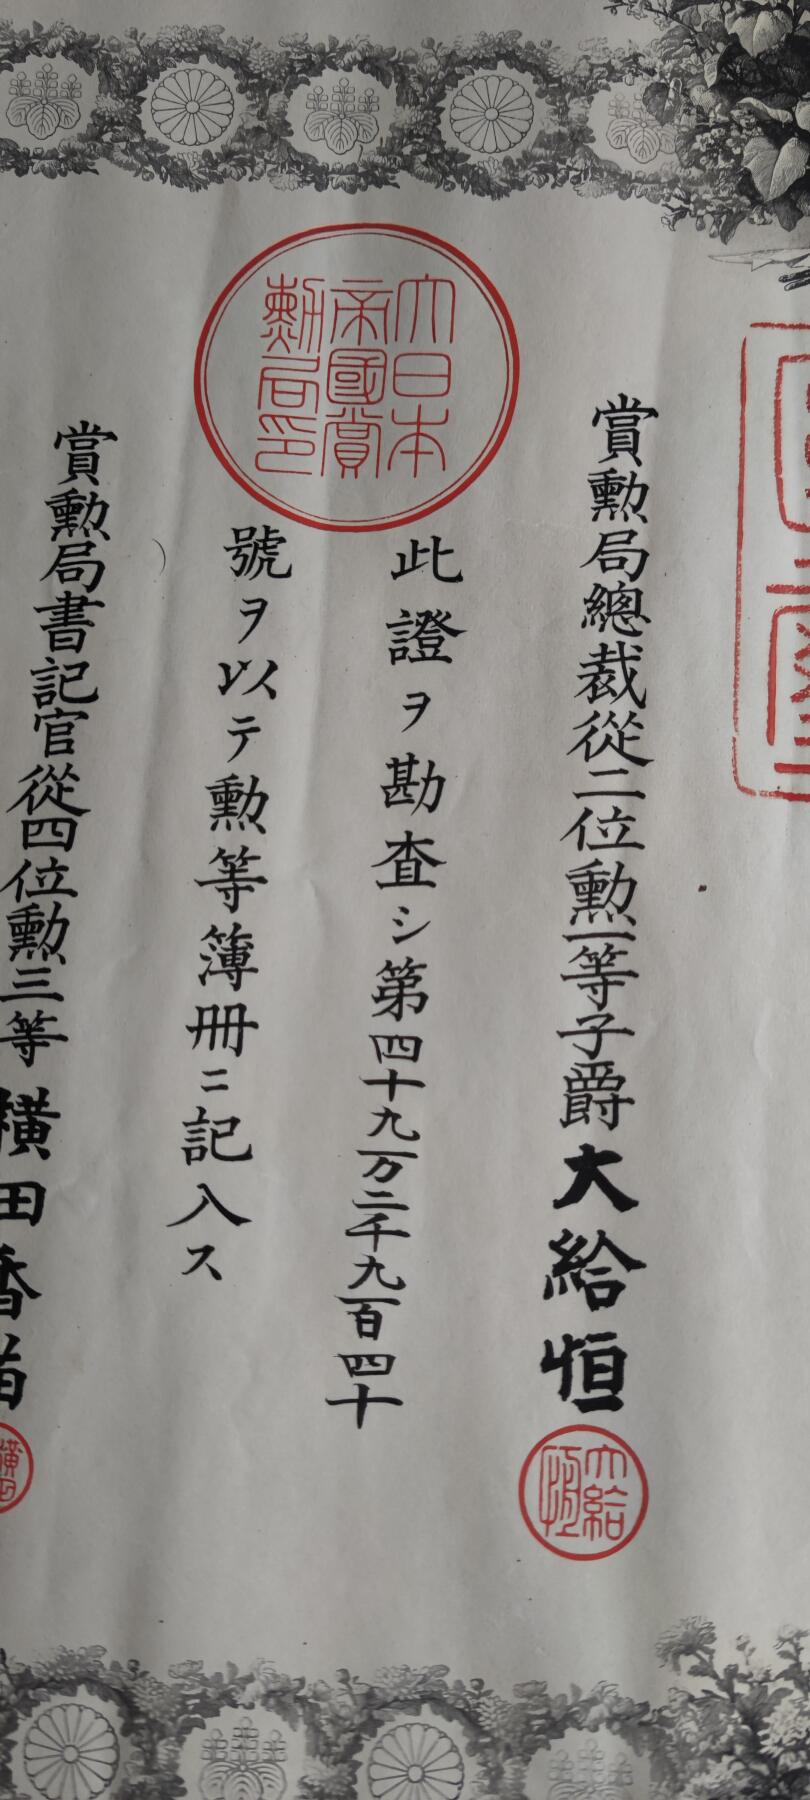 賞勲局總裁從二位勲一等子爵大給恒
大給恒
大日本
帝國賞
勲局印
此證ヲ勘査シ第四十九万二千九百四十
號ヲ以テ勲等簿冊ニ記入ス
賞勲局書記官從四位勲三等横田香苗
横田